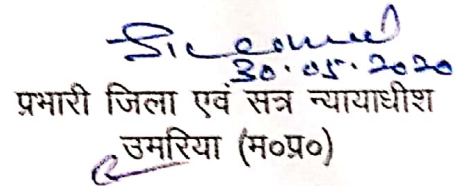 30.05.2020
प्रभारी जिला एवं सत्र न्यायाधीश
उमरिया (म०प्र०)